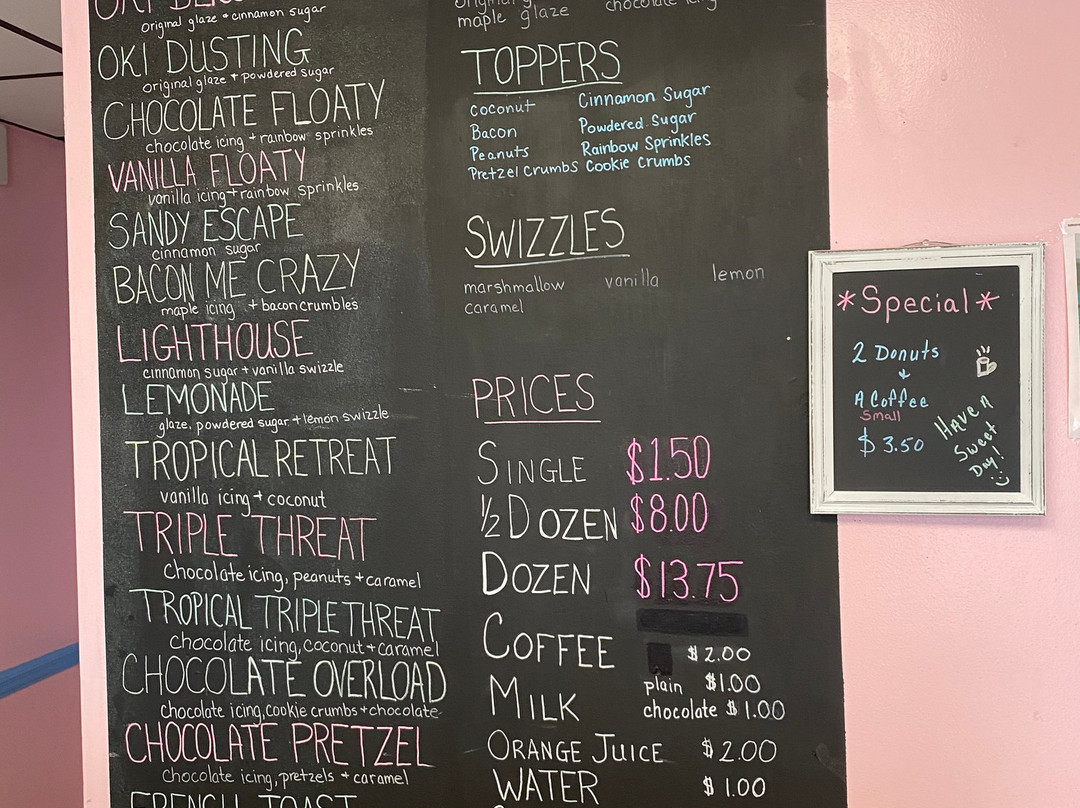 original glaze + cinnamon sugar
OKI DUSTING
original glaze + powdered sugar
CHOCOLATE FLOATY
chocolate icing + rainbow sprinkles
VANILLA FLOATY
vanilla icing + rainbow sprinkles
SANDY ESCAPE
cinnamon sugar
BACON ME CRAZY
maple icing + bacon crumbles
LIGHTHOUSE
cinnamon sugar + vanilla swizzle
LEMONADE
glaze, powdered sugar + lemon swizzle
TROPICAL RETREAT
vanilla icing + coconut
TRIPLE THREAT
Chocolate icing, peanuts + caramel
TROPICAL TRIPLE THREAT
Chocolate icing, coconut + caramel
CHOCOLATE OVERLOAD
Chocolate icing, cookie crumbs + chocolate
CHOCOLATE PRETZEL
Chocolate icing, pretzels + caramel
FRENCH TOAST
maple glaze chocolate icing
TOPPERS
coconut Cinnamon Sugar
Bacon Powdered Sugar
Peanuts Rainbow Sprinkles
Pretzel Crumbs Cookie Crumbs
SWIZZLES
marshmallow vanilla lemon
caramel
PRICES
SINGLE $1.50
1/2 DOZEN $8.00
DOZEN $13.75
COFFEE $2.00
MILK plain $1.00
chocolate $1.00
ORANGE JUICE $2.00
WATER $1.00
*Special*
2 Donuts
+
A Coffee
Small
$3.50
HAVE A
Sweet
Day!